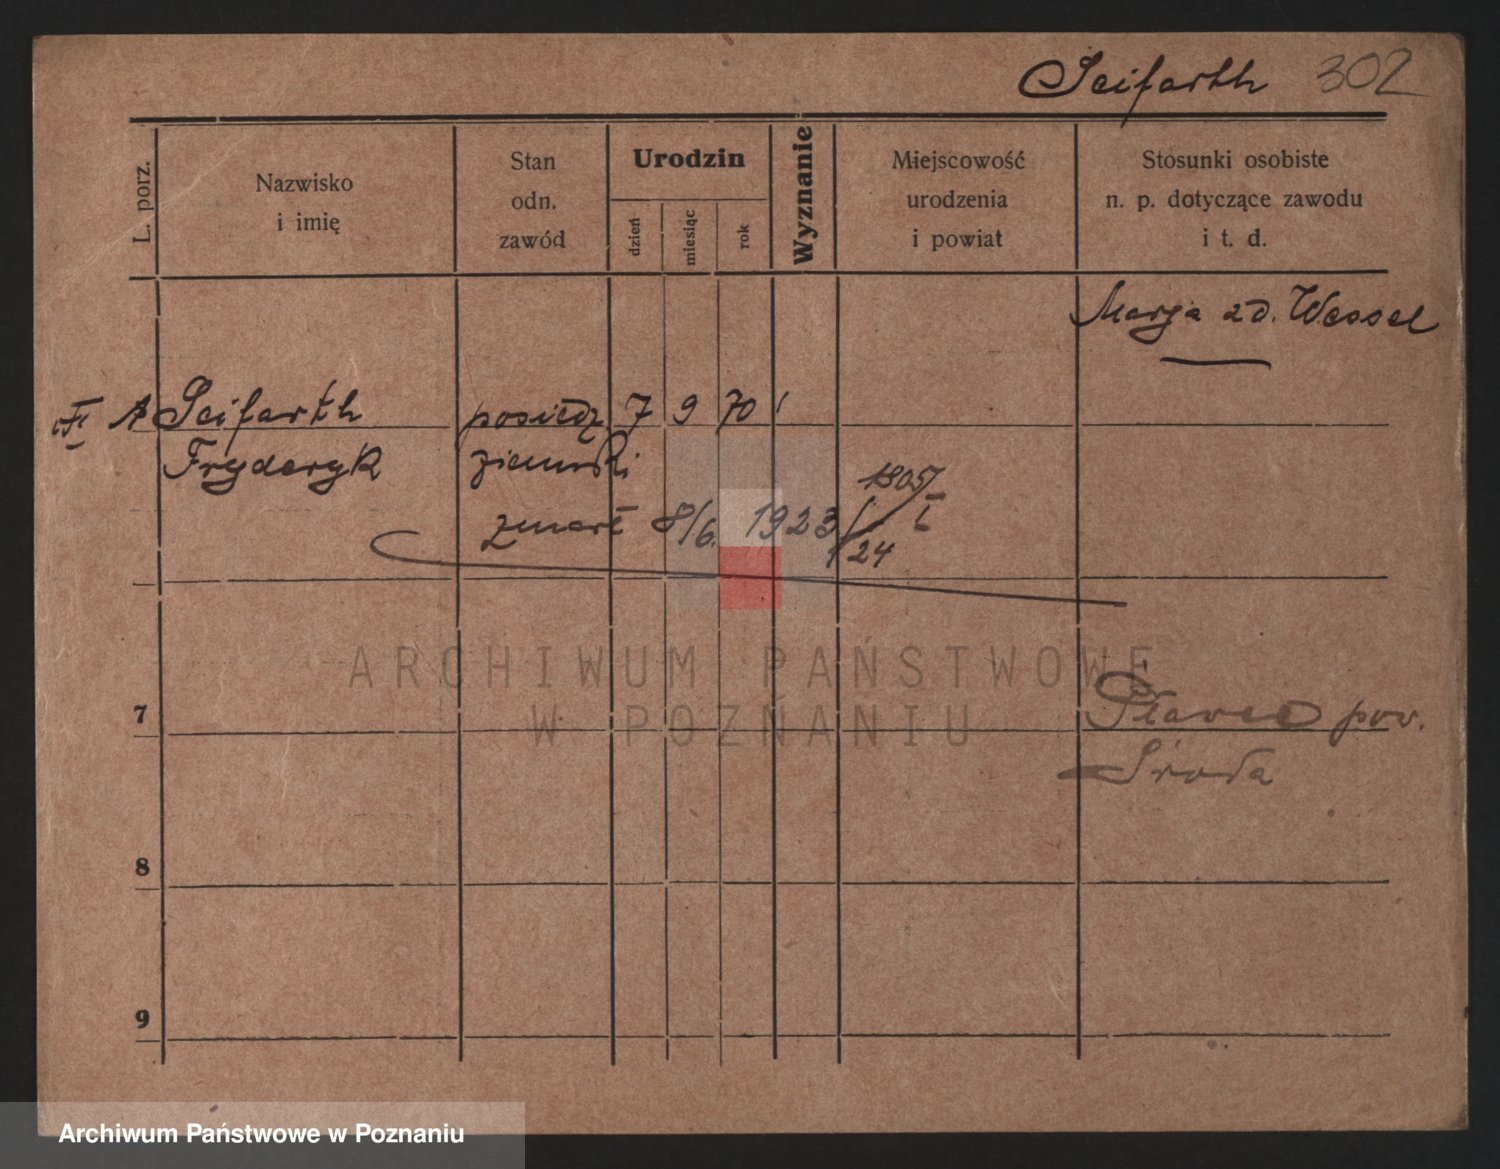 Seifarth 302
L. porz.
Nazwisko
i imię
Stan
odn.
zawód
Urodzin
dzień
miesiąc
rok
Wyznanie
Miejscowość
urodzenia
i powiat
Stosunki osobiste
n. p. dotyczące zawodu
i t. d.
Marja zd. Wessel
Seifarth posiedz. 7 9 70
Fryderyk ziemski
zmarł 8/6. 1923
1805/I
24
ARCHIWUM PAŃSTWOWE
W POZNANIU
7
pow.
Środa
8
9
Archiwum Państwowe w Poznaniu